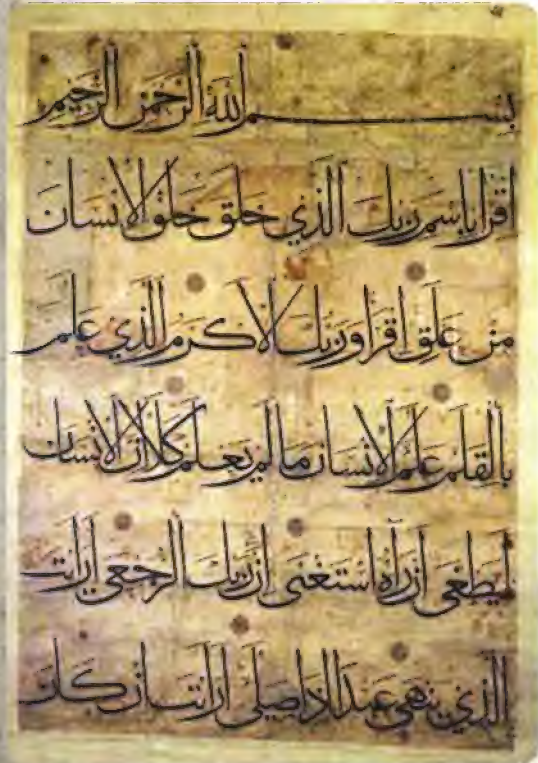 بسم الله الرحمن الرحيم
اقرا باسم ربك الذي خلق خلق الانسان
من علق اقرا وربك الاكرم الذي علم
بالقلم علم الانسان ما لم يعلم كلا ان الانسان
ليطغى ان رآه استغنى ان الى ربك الرجعى ارايت
الذي ينهى عبدا اذا صلى ارايت ان كان